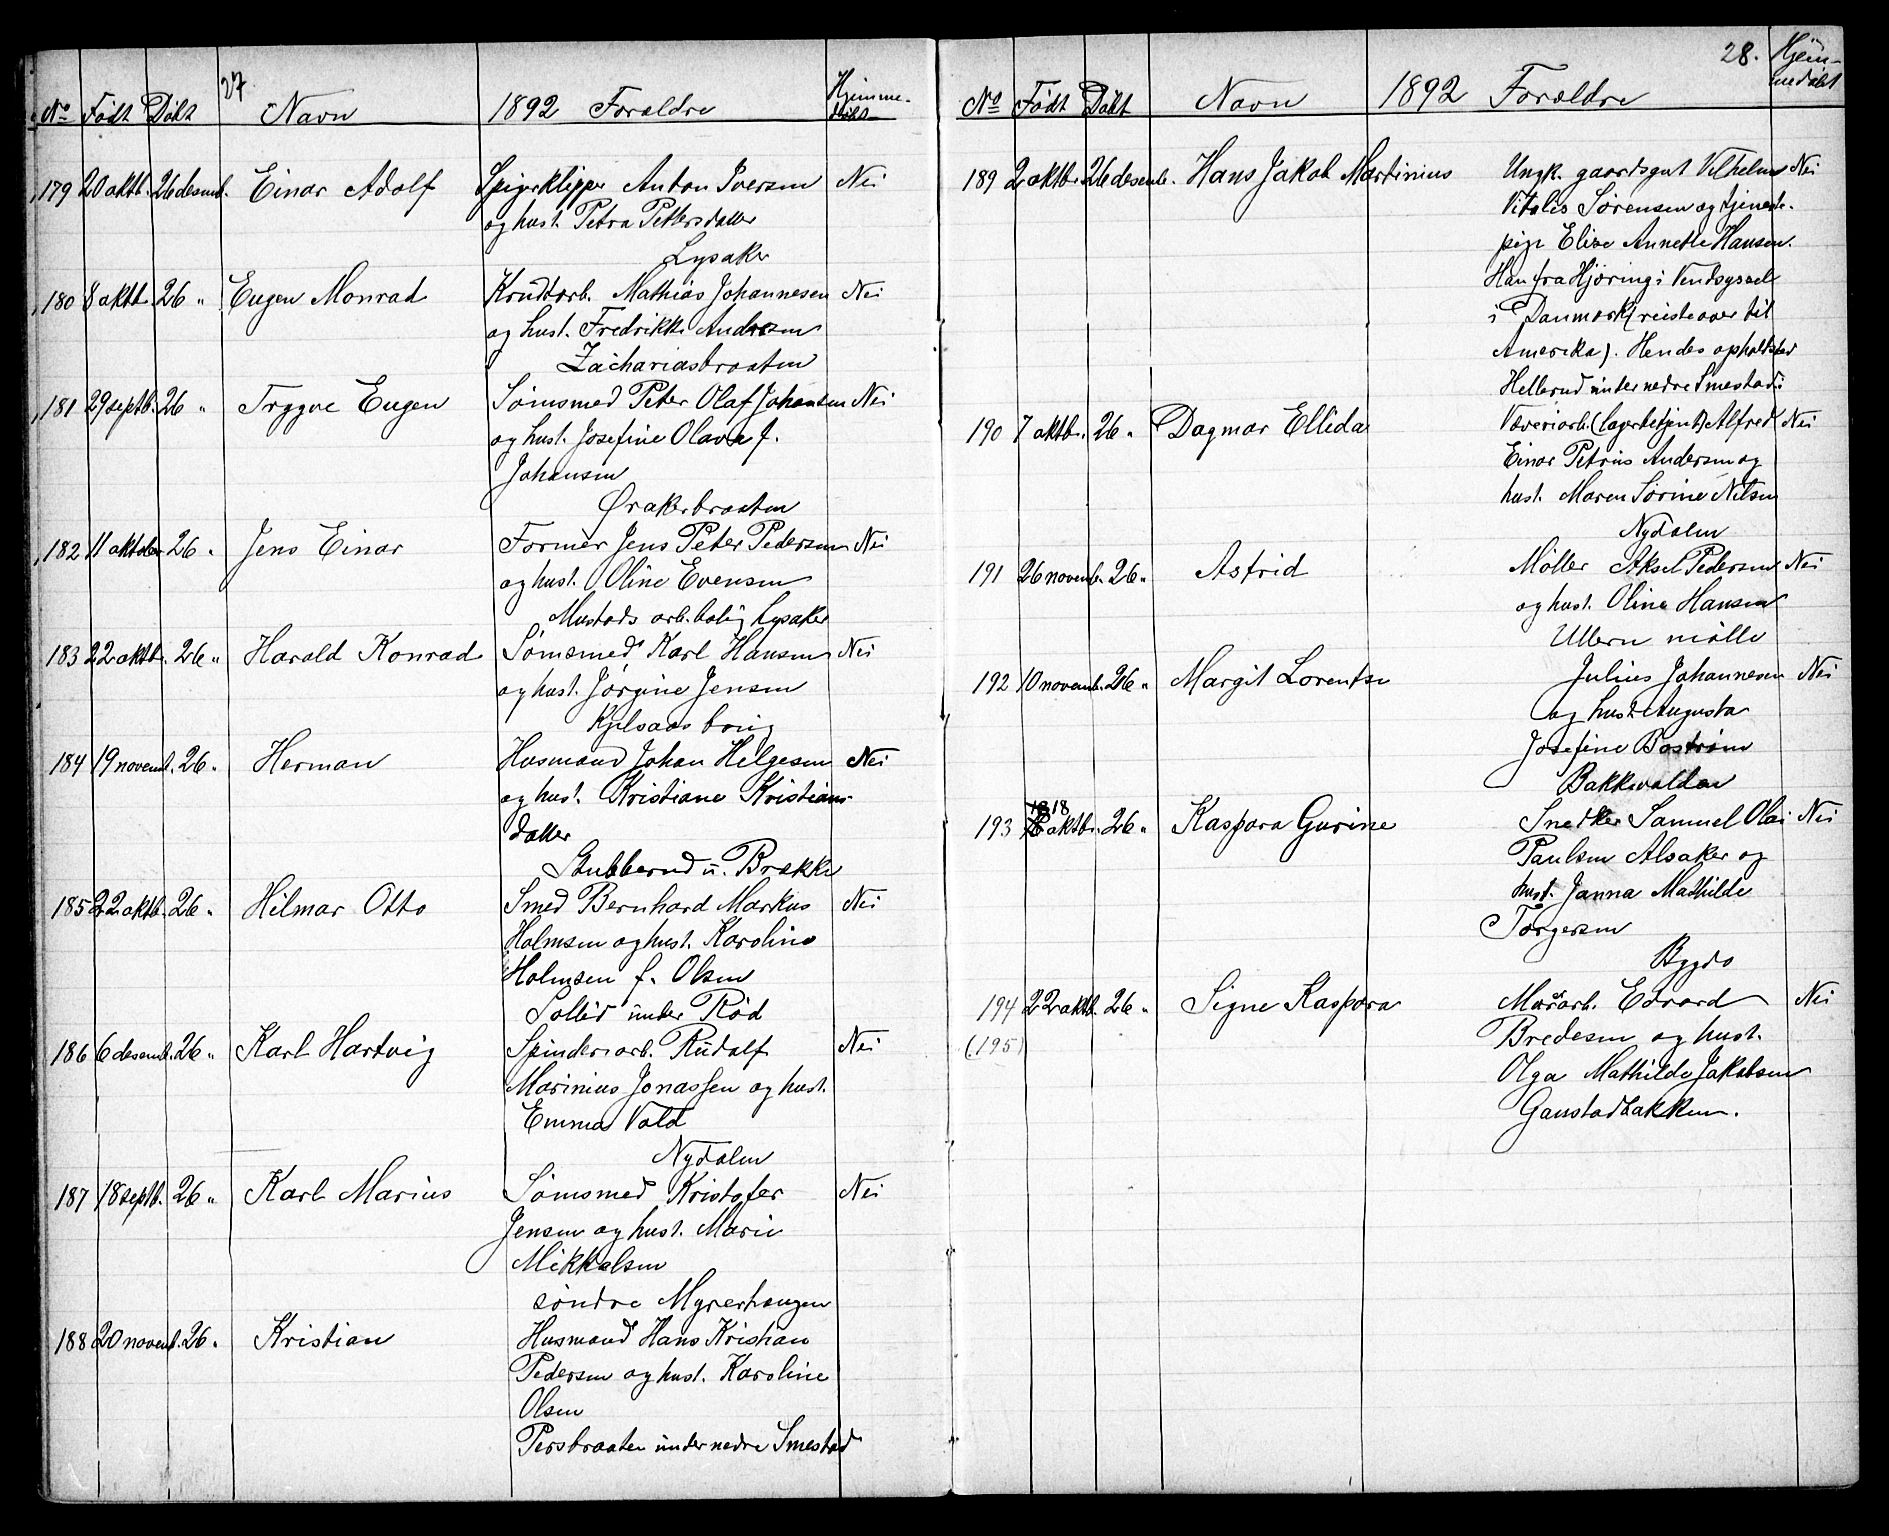 27
No Født Døbt Navn 1892 Forældre Hjemme-
døbt
179 20 oktb. 26 desemb. Einar Adolf Spigerklipper Anton Iversen Nei
og hust. Petra Pettersdatter
Lysaker
180 8 oktb. 26 " Eugen Monrad Krudtarb. Mathias Johannesen Nei
og hust. Fredrikke Andresen
Zachariasbraaten
181 29 septb. 26 " Trygve Eugen Sømsmed Peter Olaf Johansen Nei
og hust. Josefine Olava f.
Johansen
Ørakerbraaten
182 11 oktober 26 " Jens Einar Former Jens Peter Pedersen Nei
og hust. Oline Evensen
Mustads arb.bolig Lysaker
183 22 oktb. 26 " Harald Konrad Sømsmed Karl Hansen Nei
og hust. Jørgine Jensen
Kjelsaas brug
184 19 novemb. 26 " Herman Husmand Johan Helgesen Nei
og hust. Kristiane Kristians-
datter
Stubberud u. Brekke
185 22 oktb. 26 " Hilmar Otto Smed Bernhard Markus Nei
Holmsen og hust. Karoline
Holmsen f. Olsen
Sollid under Röd
186 6 desemb. 26 " Karl Hartvig Spinderiarb. Rudolf Nei
Marinius Jonassen og hust.
Emma Vold
Nydalen
187 18 septb. 26 " Karl Marius Sømsmed Kristofer Nei
Jensen og hust. Marie
Mikkelsen
søndre Myrerhaugen
188 20 novemb. 26 " Kristian Husmand Hans Kristian
Pedersen og hust. Karoline
Olsen
Persbraaten under nedre Smestad
28.
No Født Døbt Navn 1892 Forældre Hjem-
medøbt
189 2 oktb. 26 desemb. Hans Jakob Martinius Ungk. gaardsgut Vilhelm Nei
Vitalis Sørensen og tjeneste-
pige Elise Annette Hansen.
Han fra Hjøring i Vendsyssel
i Danmark (reiste over til
Amerika). Hendes opholdsted
Hellerud under nedre Smestad
190 7 oktb. 26 " Dagmar Ellida Væveriarb. (lagerbetjent) Alfred Nei
Einar Petrius Andersen og
hust. Maren Sørine Nilsen
Nydalen
191 26 novemb. 26 " Astrid Møller Aksel Pedersen Nei
og hust. Oline Hansen
Ullern mølle
192 10 novemb. 26 " Margit Lorentse Julius Johannesen Nei
og hust. Augusta
Josefine Bostrøm
Bakkevolden
18 18
193 oktb. 26 " Kaspara Gurine Snedker Samuel Olai Nei
Paulsen Alsaker og
hust. Janna Mathilde
Torgersen
Bygdø
194 22 oktb. 26 " Signe Kaspara Murarb. Edvard Nei
(195) Bredesen og hust.
Olga Mathilde Jakobsen
Gaustadbakken.